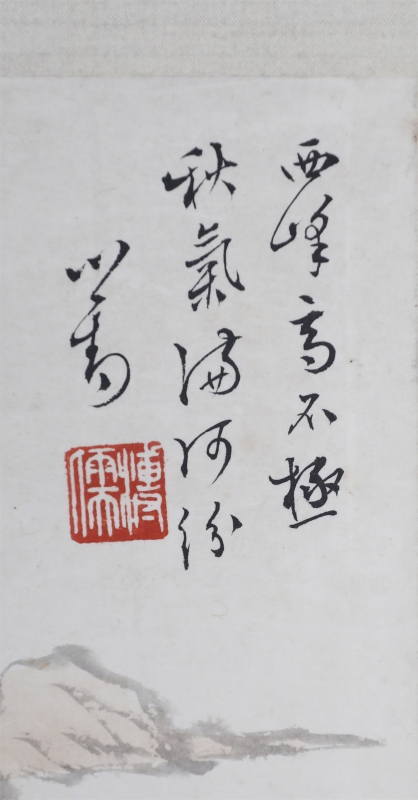 西峰高不極
秋氣滿河汾
心畬
溥儒